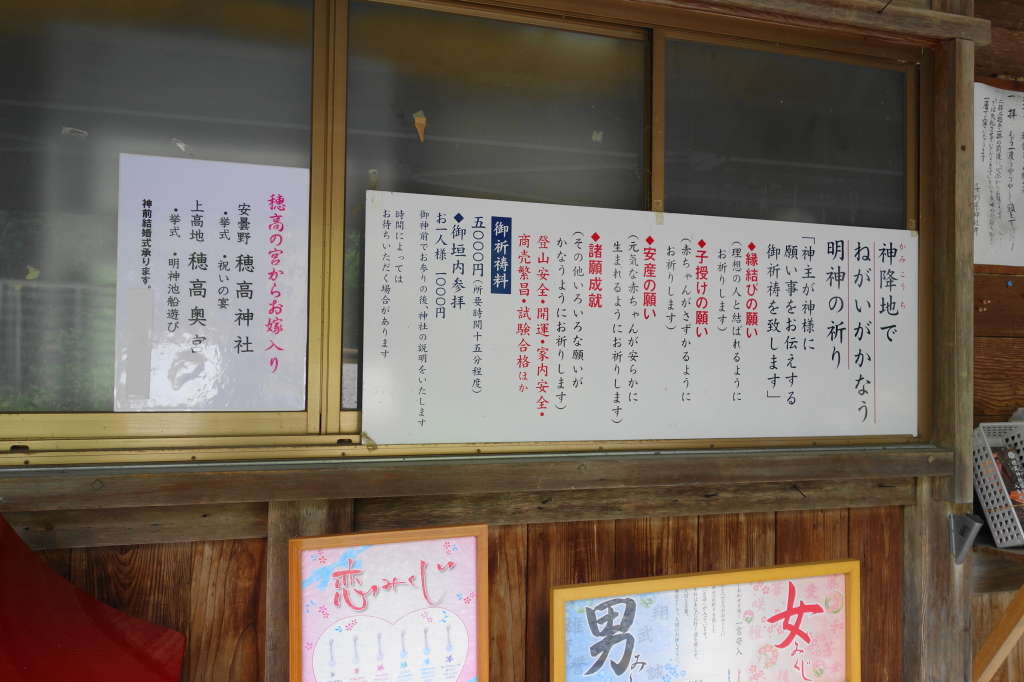 神降地で
かみこうち
ねがいがかなう
明神の祈り
「神主が神様に
願い事をお伝えする
御祈祷を致します」
◆縁結びの願い
(理想の人と結ばれるように
お祈りします)
◆子授けの願い
(赤ちゃんがさずかるように
お祈りします)
◆安産の願い
(元気な赤ちゃんが安らかに
生まれるようにお祈りします)
◆諸願成就
(その他いろいろな願いが
かなうようにお祈りします)
登山安全・開運・家内安全・
商売繁昌・試験合格ほか
御祈祷料
五〇〇〇円(所要時間十五分程度)
◆御垣内参拝
お一人様 一〇〇〇円
御神前でお参りの後、神社の説明をいたします
時間によっては
お待ちいただく場合があります
穂高の宮からお嫁入り
安曇野 穂高神社
・挙式 ・祝いの宴
上高地 穂高奥宮
・挙式 ・明神池船遊び
神前結婚式承ります。
恋つみくじ
女みくじ
男み